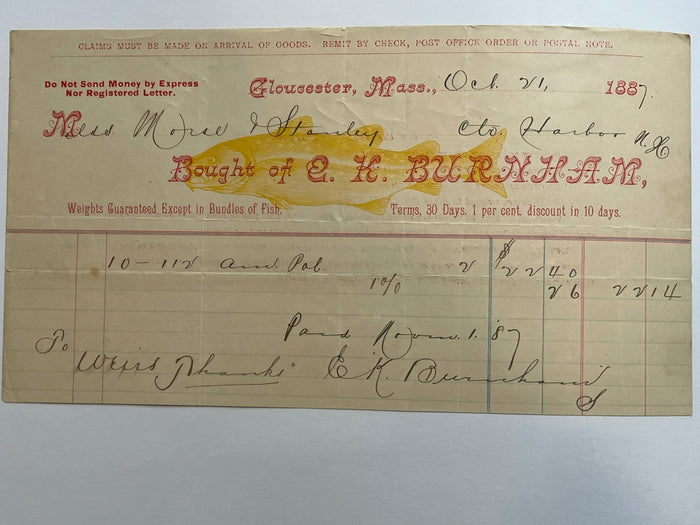 CLAIMS MUST BE MADE ON ARRIVAL OF GOODS. REMIT BY CHECK, POST OFFICE ORDER OR POSTAL NOTE.
Do Not Send Money by Express
Nor Registered Letter.
Gloucester, Mass., Oct. 21, 1887.
Mess. Morse & Stanley Ctr Harbor N.H
Bought of E. K. BURNHAM,
Weights Guaranteed Except in Bundles of Fish. Terms, 30 Days. 1 per cent. discount in 10 days.
10 - 112 Pol. 2 $22 40
1% 26 22 14
Paid Novm. 1. '87
To
Weirs Thanks E K. Burnham